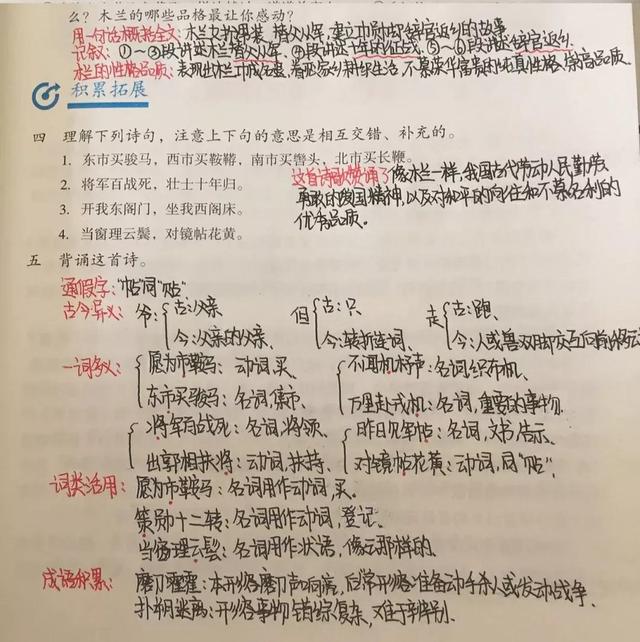 么？木兰的哪些品格最让你感动？
用一句话概括全文：木兰女扮男装，替父从军，建立功勋后辞官返乡的故事
记叙：①～③段讲述木兰替父从军，④段讲述十年的征战，⑤～⑥段讲述辞官返乡。
木兰的性格品质：表现出木兰功成名显，眷恋家乡耕织生活，不慕荣华富贵的纯真性格，崇高品质。
积累拓展
四 理解下列诗句，注意上下句的意思是相互交错、补充的。
1. 东市买骏马，西市买鞍鞯，南市买辔头，北市买长鞭。
2. 将军百战死，壮士十年归。
3. 开我东阁门，坐我西阁床。
4. 当窗理云鬓，对镜帖花黄。
这首诗歌赞诵了像木兰一样，我国古代劳动人民勤劳
勇敢的爱国精神，以及对和平的向往和不慕名利的
优秀品质。
五 背诵这首诗。
通假字："帖"同"贴"
古今异义：爷：古：父亲 但 古：只 走 古：跑
今：父亲的父亲 今：转折连词 今：人或兽双脚交互向前移动
一词多义：愿为市鞍马：动词，买 不闻机杼声：名词，织布机
东市买骏马：名词，集市 万里赴戎机：名词，重要的事物
将军百战死：名词，将领 昨日见军帖：名词，文书，告示
出郭相扶将：动词，扶持 对镜帖花黄：动词，同"贴"
词类活用：愿为市鞍马：名词用作动词，买。
策勋十二转：名词用作动词，登记。
当窗理云鬓：名词用作状语，像云那样的
成语积累：磨刀霍霍：本形容磨刀声响亮，后常形容准备动手杀人或发动战争.
扑朔迷离：形容事物错综复杂，难于辨别.